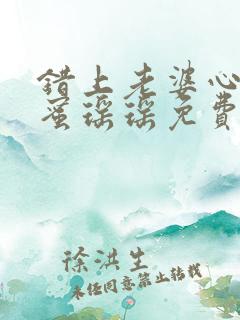 错上老婆心
蜜瑶瑶免费
徐洪生
未经同意禁止转载